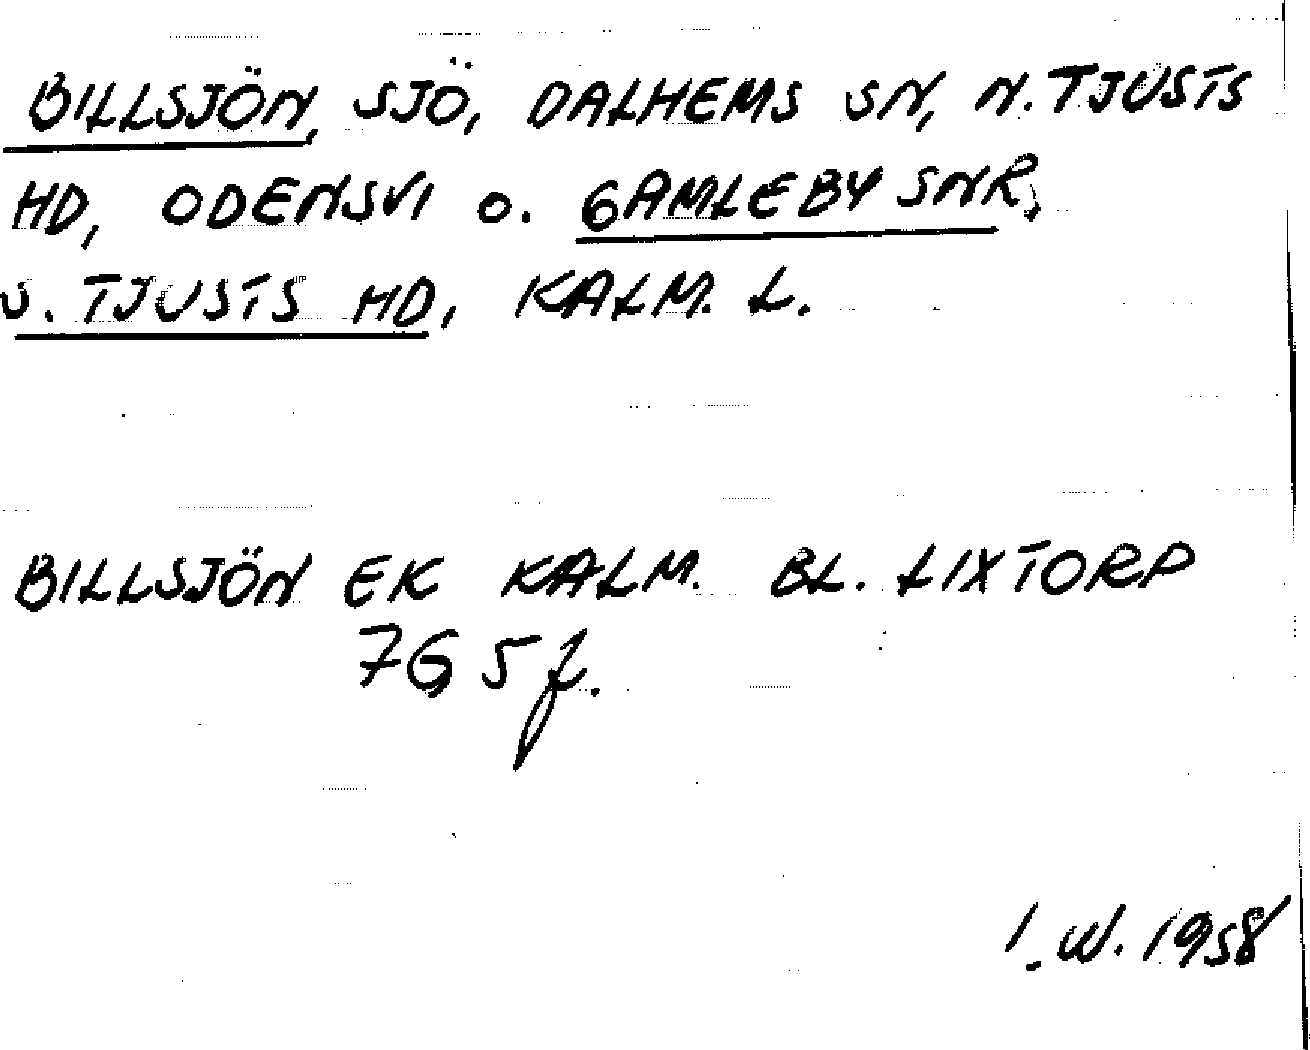 BILLSJÖN, SJÖ, DALHEMS SN, N. TJUSTS
HD, ODENSVI o. GAMLEBY SNR,
S. TJUSTS HD, KALM. L.
BILLSJÖN EK KALM. BL. LIXTORP
7G 5f.
I.W. 1958